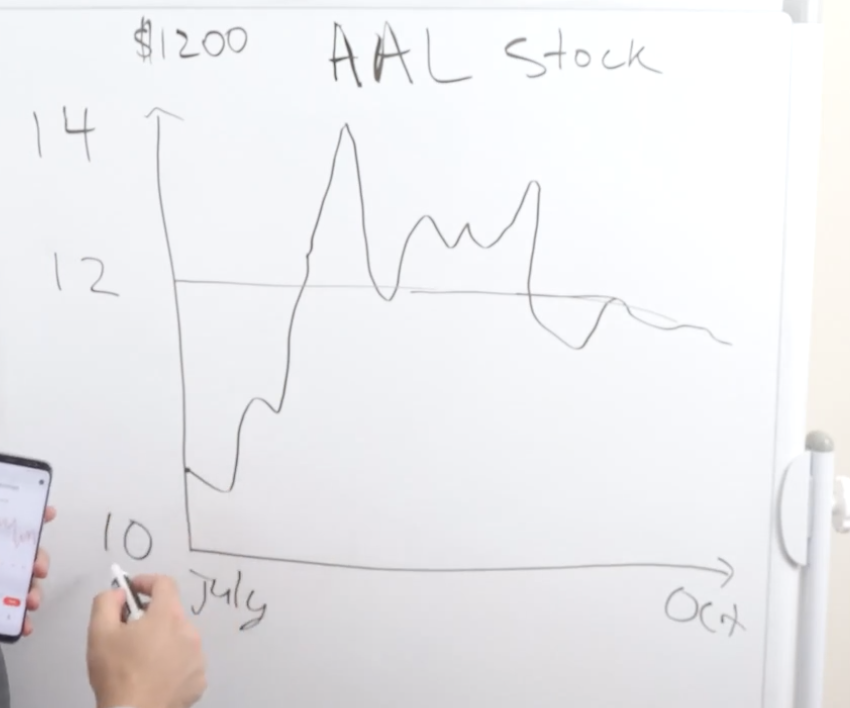 $1200 AAL Stock
14
12
10
July Oct